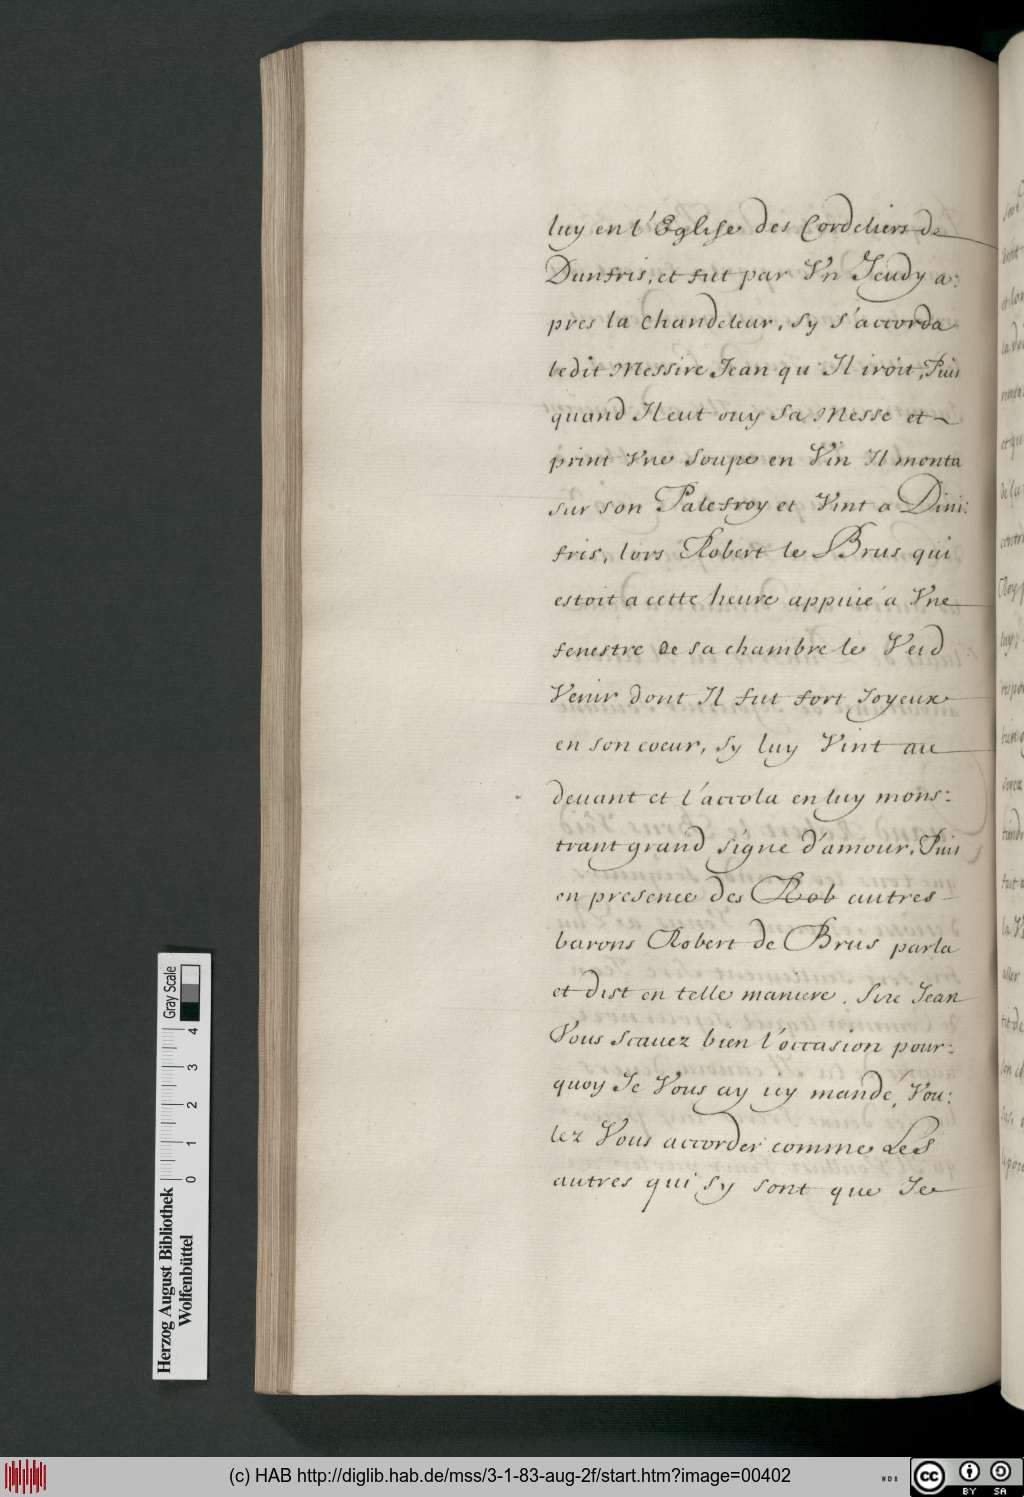 luy en l'Eglise des Cordeliers de
Dunfris, et fut par Vn Jeudy a:
pres la Chandeleur, sy s'accorda
ledit Messire Jean qu Il iroit, Puis
quand Il eut ouy sa Messe et
print Vne soupe en Vin Il monta
sur son Palefroy et Vint a Dini:
fris, lors Robert le Brus qui
estoit a cette heure appuié a Vne
fenestre de sa chambre le Veid
Venir dont Il fut fort Joyeux
en son coeur, sy luy Vint au
deuant et l'accola en luy mons:
trant grand signe d'amour, Puis
en presence des Rob autres
barons Robert de Brus parla
et dist en telle maniere. Sire Jean
Vous scauez bien l'occasion pour:
quoy Je Vous ay icy mandé, Vou:
lez Vous accorder comme Les
autres qui sy sont que Je
Herzog August Bibliothek
Wolfenbüttel
0 1 2 3 4
Gray Scale
(c) HAB http://diglib.hab.de/mss/3-1-83-aug-2f/start.htm?image=00402
WDB
CC BY SA